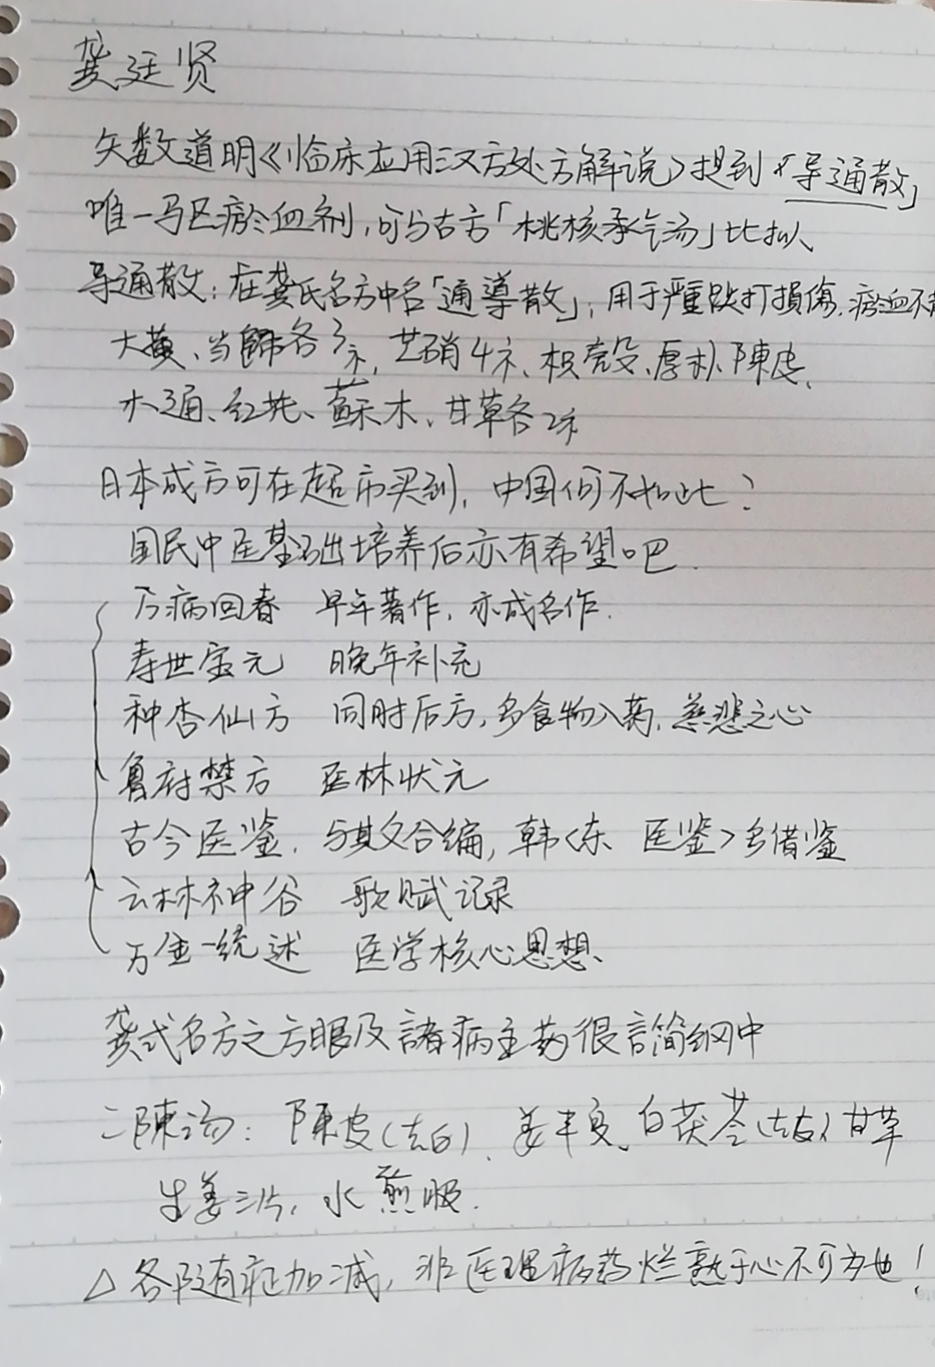 龚廷贤
矢数道明《临床应用汉方处方解说》提到「导通散」
唯一马区瘀血剂,可与古方「桃核承气汤」比拟
导通散:在龚氏名方中名「通導散」;用于严重跌打損傷.瘀血不
大黄、当歸各3
芒硝4 、枳殼、厚朴、陳皮、
木通、红花、蘇木、甘草各2
日本成方可在超市买到,中国何不如此?
国民中医基础培养后亦有希望吧.
万病回春 早年著作,亦成名作.
寿世宝元 晚年补充
种杏仙方 同时后方,多食物入药,慈悲之心
鲁府禁方 医林状元
古今医鉴. 与其父合编,韩<东 医鉴>多借鉴
云林神谷 歌赋记录
万金一统述 医学核心思想、
龚式名方之方眼及諸病主药很言简纲中
二陳汤:陳皮(去白)、姜半夏、白茯苓(去 )甘草
生姜三片,水煎服.
△各 有症加减,非医理病药烂熟于心不可为也!